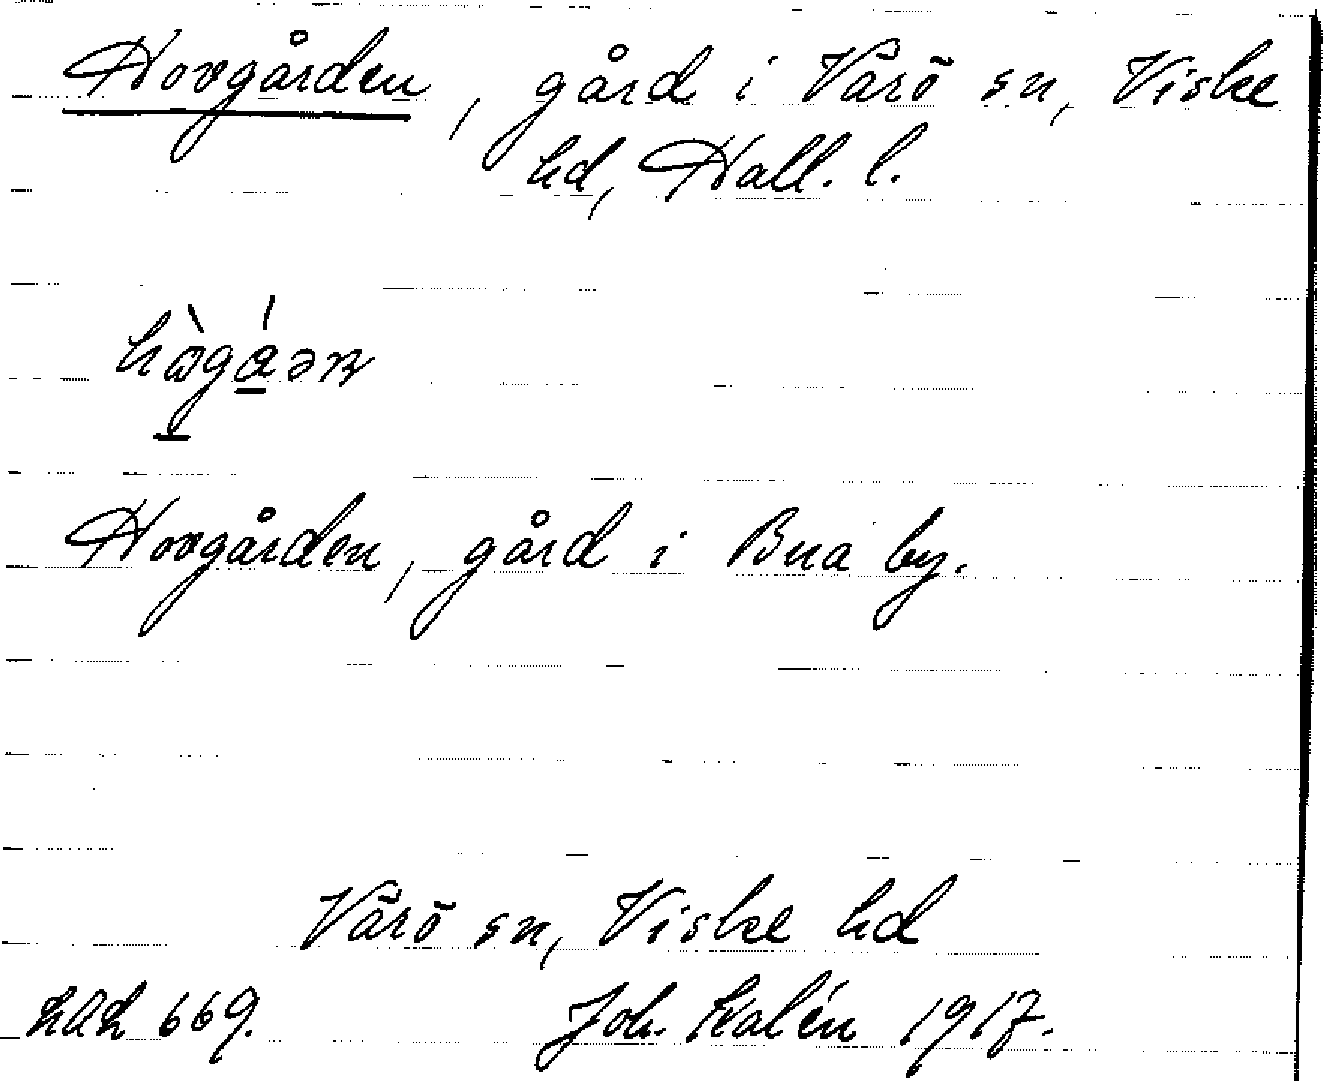 Hovgården, gård i Värö sn, Viske
hd, Hall. l.
Hovgården, gård i Bua by.
Värö sn, Viske hd
669. Joh. Kalén 1917.